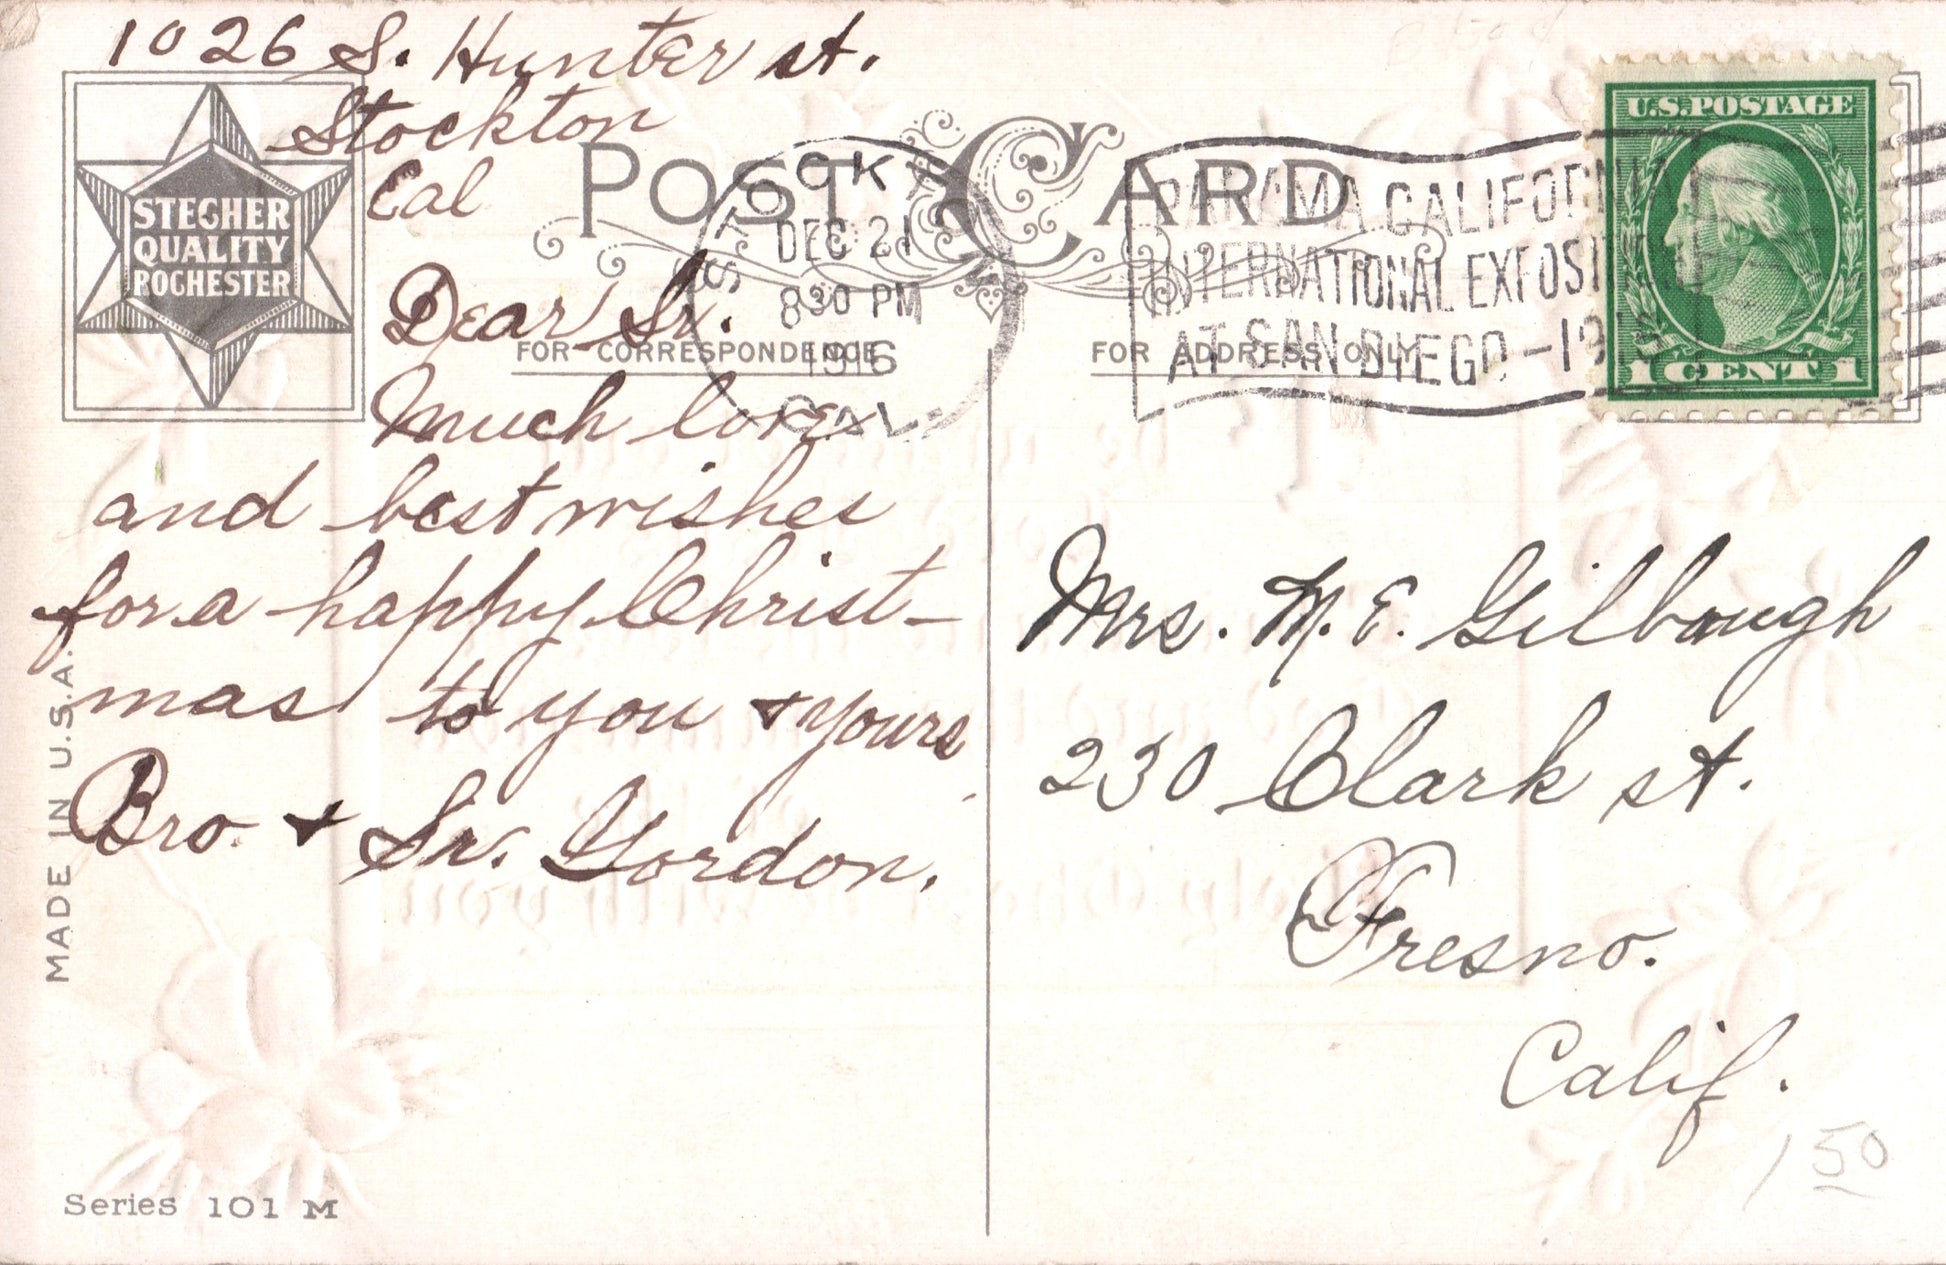 1026 S. Hunter st.
Stockton
Cal
STECHER
QUALITY
ROCHESTER
POST CARD
STOCKTON
DEC 21
830 PM
1916
CAL.
PANAMA CALIFORNIA
INTERNATIONAL EXPOSITION
AT SAN DIEGO - 1916
U.S. POSTAGE
1 CENT 1
FOR CORRESPONDENCE
FOR ADDRESS ONLY
Dear Sr.
Much love
and best wishes
for a happy Christ-
mas to you & yours
Bro. & Sr. Gordon.
Mrs. M. E. Gilbough
230 Clark st.
Fresno.
Calif.
150
MADE IN U.S.A.
Series 101 M